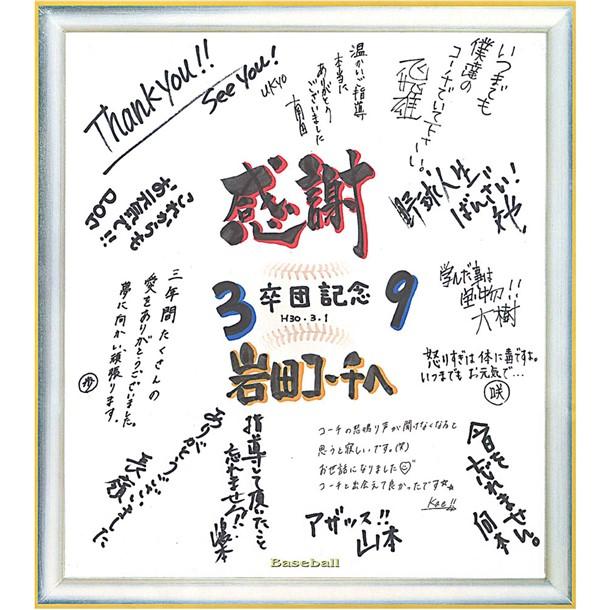 Thank you!!
See you!
UKyo
温かいご指導
本当に
ありがとう
ございました
いつまでも
僕達の
コーチでいて下さい!
飛雄
これからも
お元気で!!
感謝
野球人生
ばんざい!
3 卒団記念 9
H30.3.1
学んだ事は
宝物!!
大樹
岩田コーチへ
三年間たくさんの
愛をありがとうございました。
夢に向かい、頑張ります。
怒りすぎは体に毒ですよ。
いつまでもお元気で…
咲
コーチの怒鳴り声が聞けなくなると
思うと寂しいです。(笑)
お世話になりました
コーチと出会えて良かったです☆
Kae!!
ありがとうございました
指導して頂いたこと
忘れません!!
アザッス!!
山本
今日を
忘れません。
Baseball